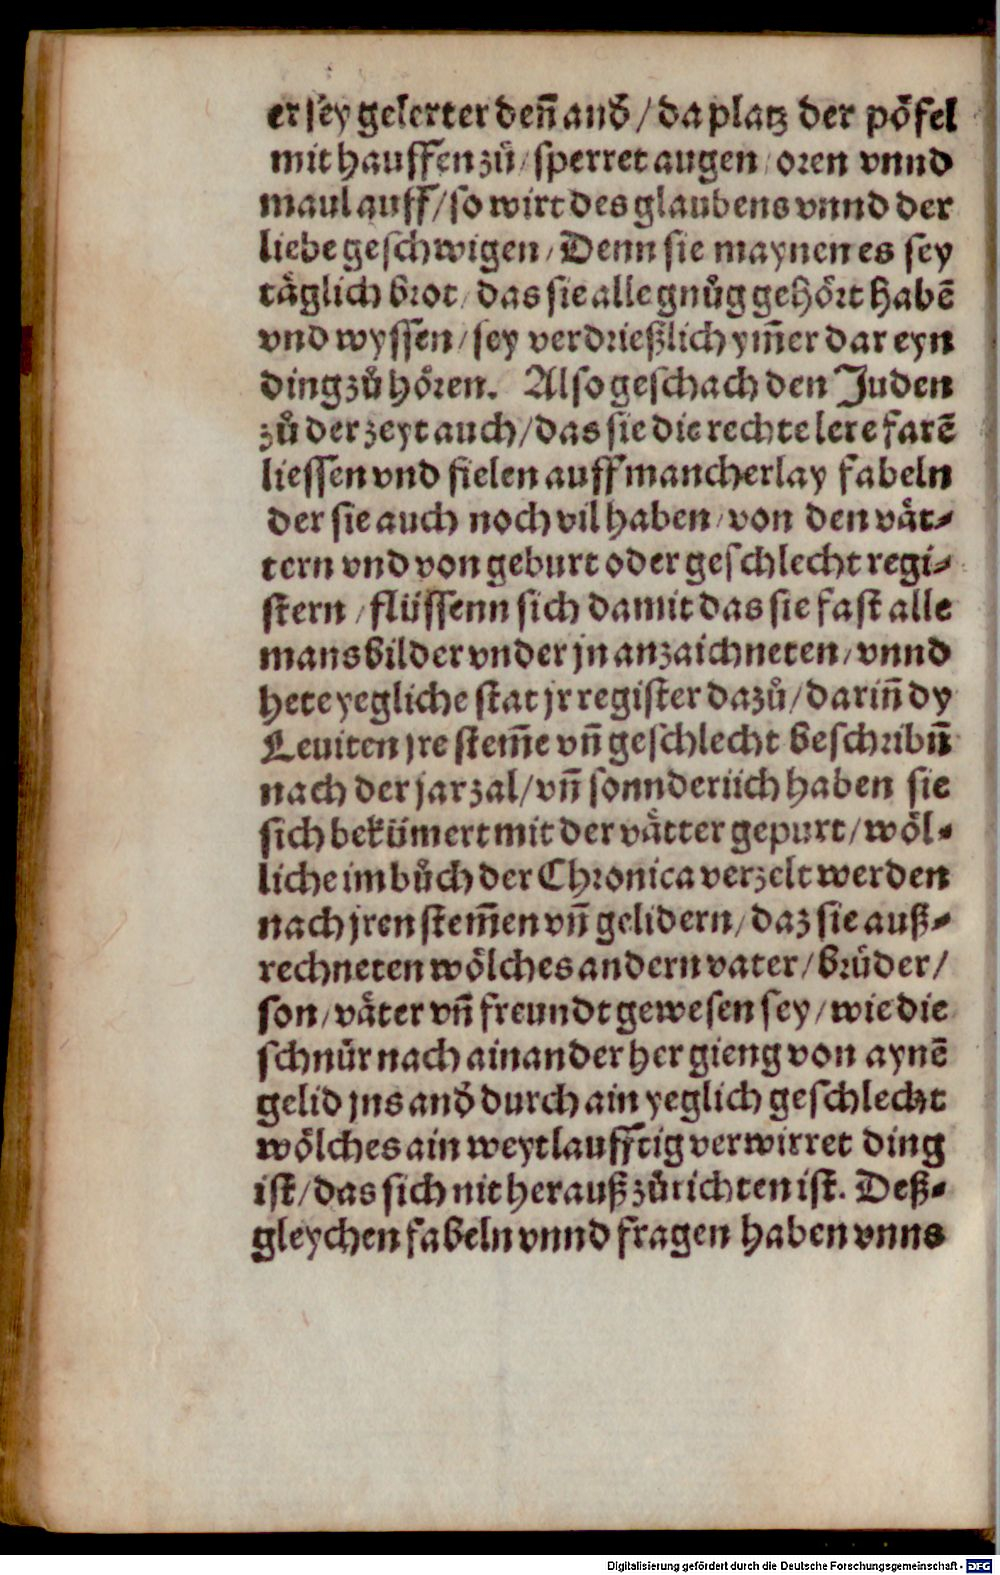 er sey gelerter deñ and̄ / da platz der pöfel
mit hauffen zů / sperret augen / oren vnnd
maul auff / so wirt des glaubens vnnd der
liebe geschwigen / Denn sie maynen es sey
täglich brot / das sie alle gnůg gehört habē
vnd wyssen / sey verdrießlich ym̄er dar eyn
ding zů hören. Also geschach den Juden
zů der zeyt auch / das sie die rechte lere farē
liessen vnd fielen auff mancherlay fabeln
der sie auch noch vil haben / von den vät⸗
tern vnd von geburt oder geschlecht regi⸗
stern / flüssenn sich damit das sie fast alle
mansbilder vnder jn anzaichneten / vnnd
hete yegliche stat jr register dazů / dariñ dy
Leuiten jre stem̄e vñ geschlecht beschribñ
nach der jarzal / vñ sonnderiich haben sie
sich bekümert mit der vätter gepurt / wöl⸗
liche im bůch der Chronica verzelt werden
nach jren stem̄en vñ gelidern / daz sie auß⸗
rechneten wölches andern vater / brůder /
son / väter vñ freundt gewesen sey / wie die
schnůr nach ainander her gieng von aynē
gelid jns and̄ durch ain yeglich geschlecht
wölches ain weytlaufftig verwirret ding
ist / das sich nit herauß zůrichten ist. Deß⸗
gleychen fabeln vnnd fragen haben vnns
Digitalisierung gefördert durch die Deutsche Forschungsgemeinschaft - DFG